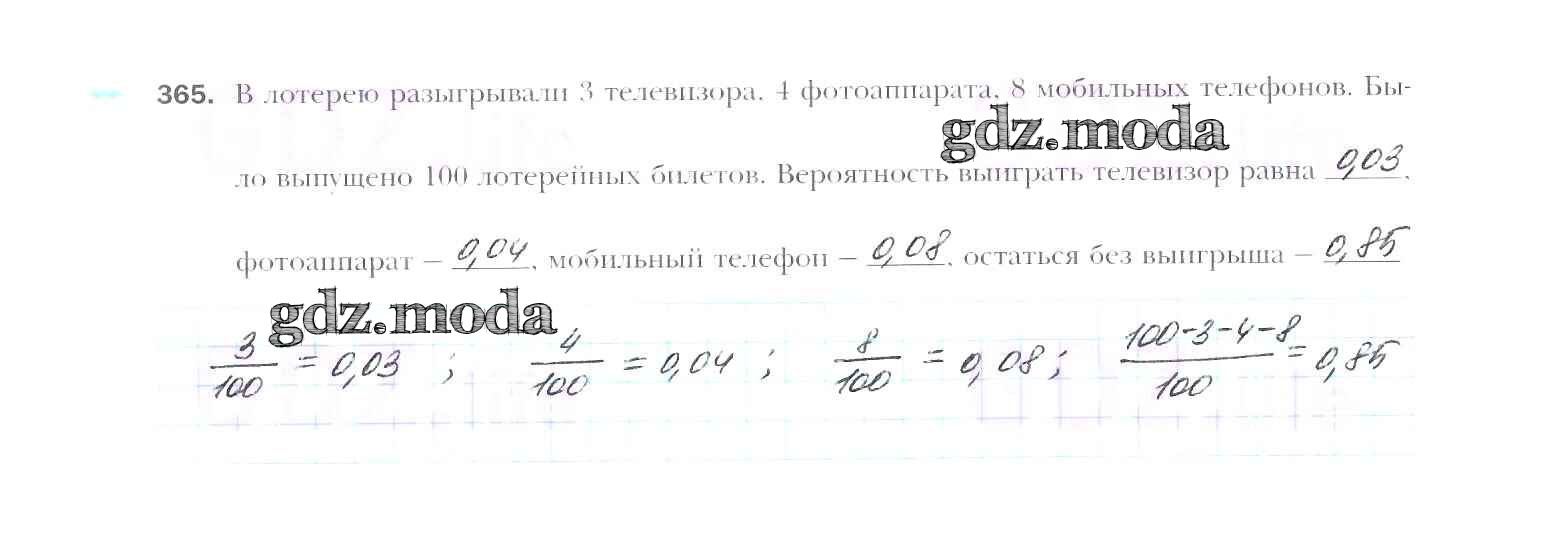 365. В лотерею разыгрывали 3 телевизора, 4 фотоаппарата, 8 мобильных телефонов. Бы-
gdz.moda
ло выпущено 100 лотерейных билетов. Вероятность выиграть телевизор равна 0,03,
фотоаппарат – 0,04, мобильный телефон – 0,08, остаться без выигрыша – 0,85
gdz.moda
3/100 = 0,03 ; 4/100 = 0,04 ; 8/100 = 0,08 ; 100-3-4-8/100 = 0,85